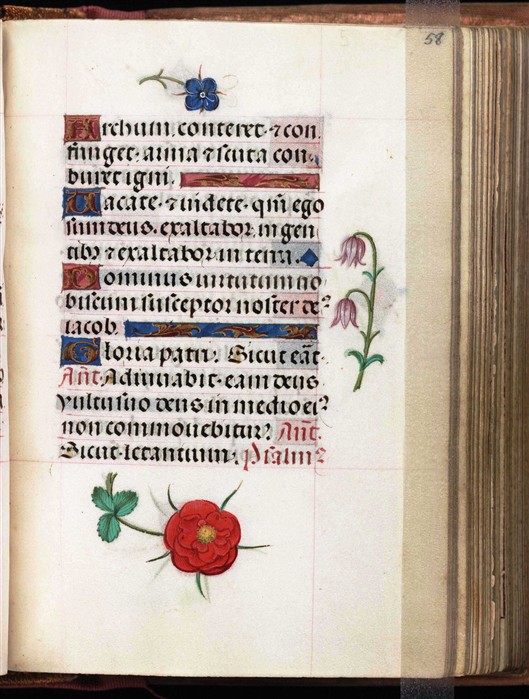 58
Archum conteret ⁊ con
fringet arma ⁊ scuta con
buret igni.
Vacate ⁊ videte qm̄ ego
sum deus exaltabor in gen
tibꝫ ⁊ exaltabor in terra.
Dominus uirtutum no
biscum susceptor noster deꝰ
iacob.
Gloria patri. Sicut erat.
Añt. Adiuuabit eam deus
vultu suo deus in medio eiꝰ
non commouebitur. Añt.
Sicut letantium. Psalmꝰ